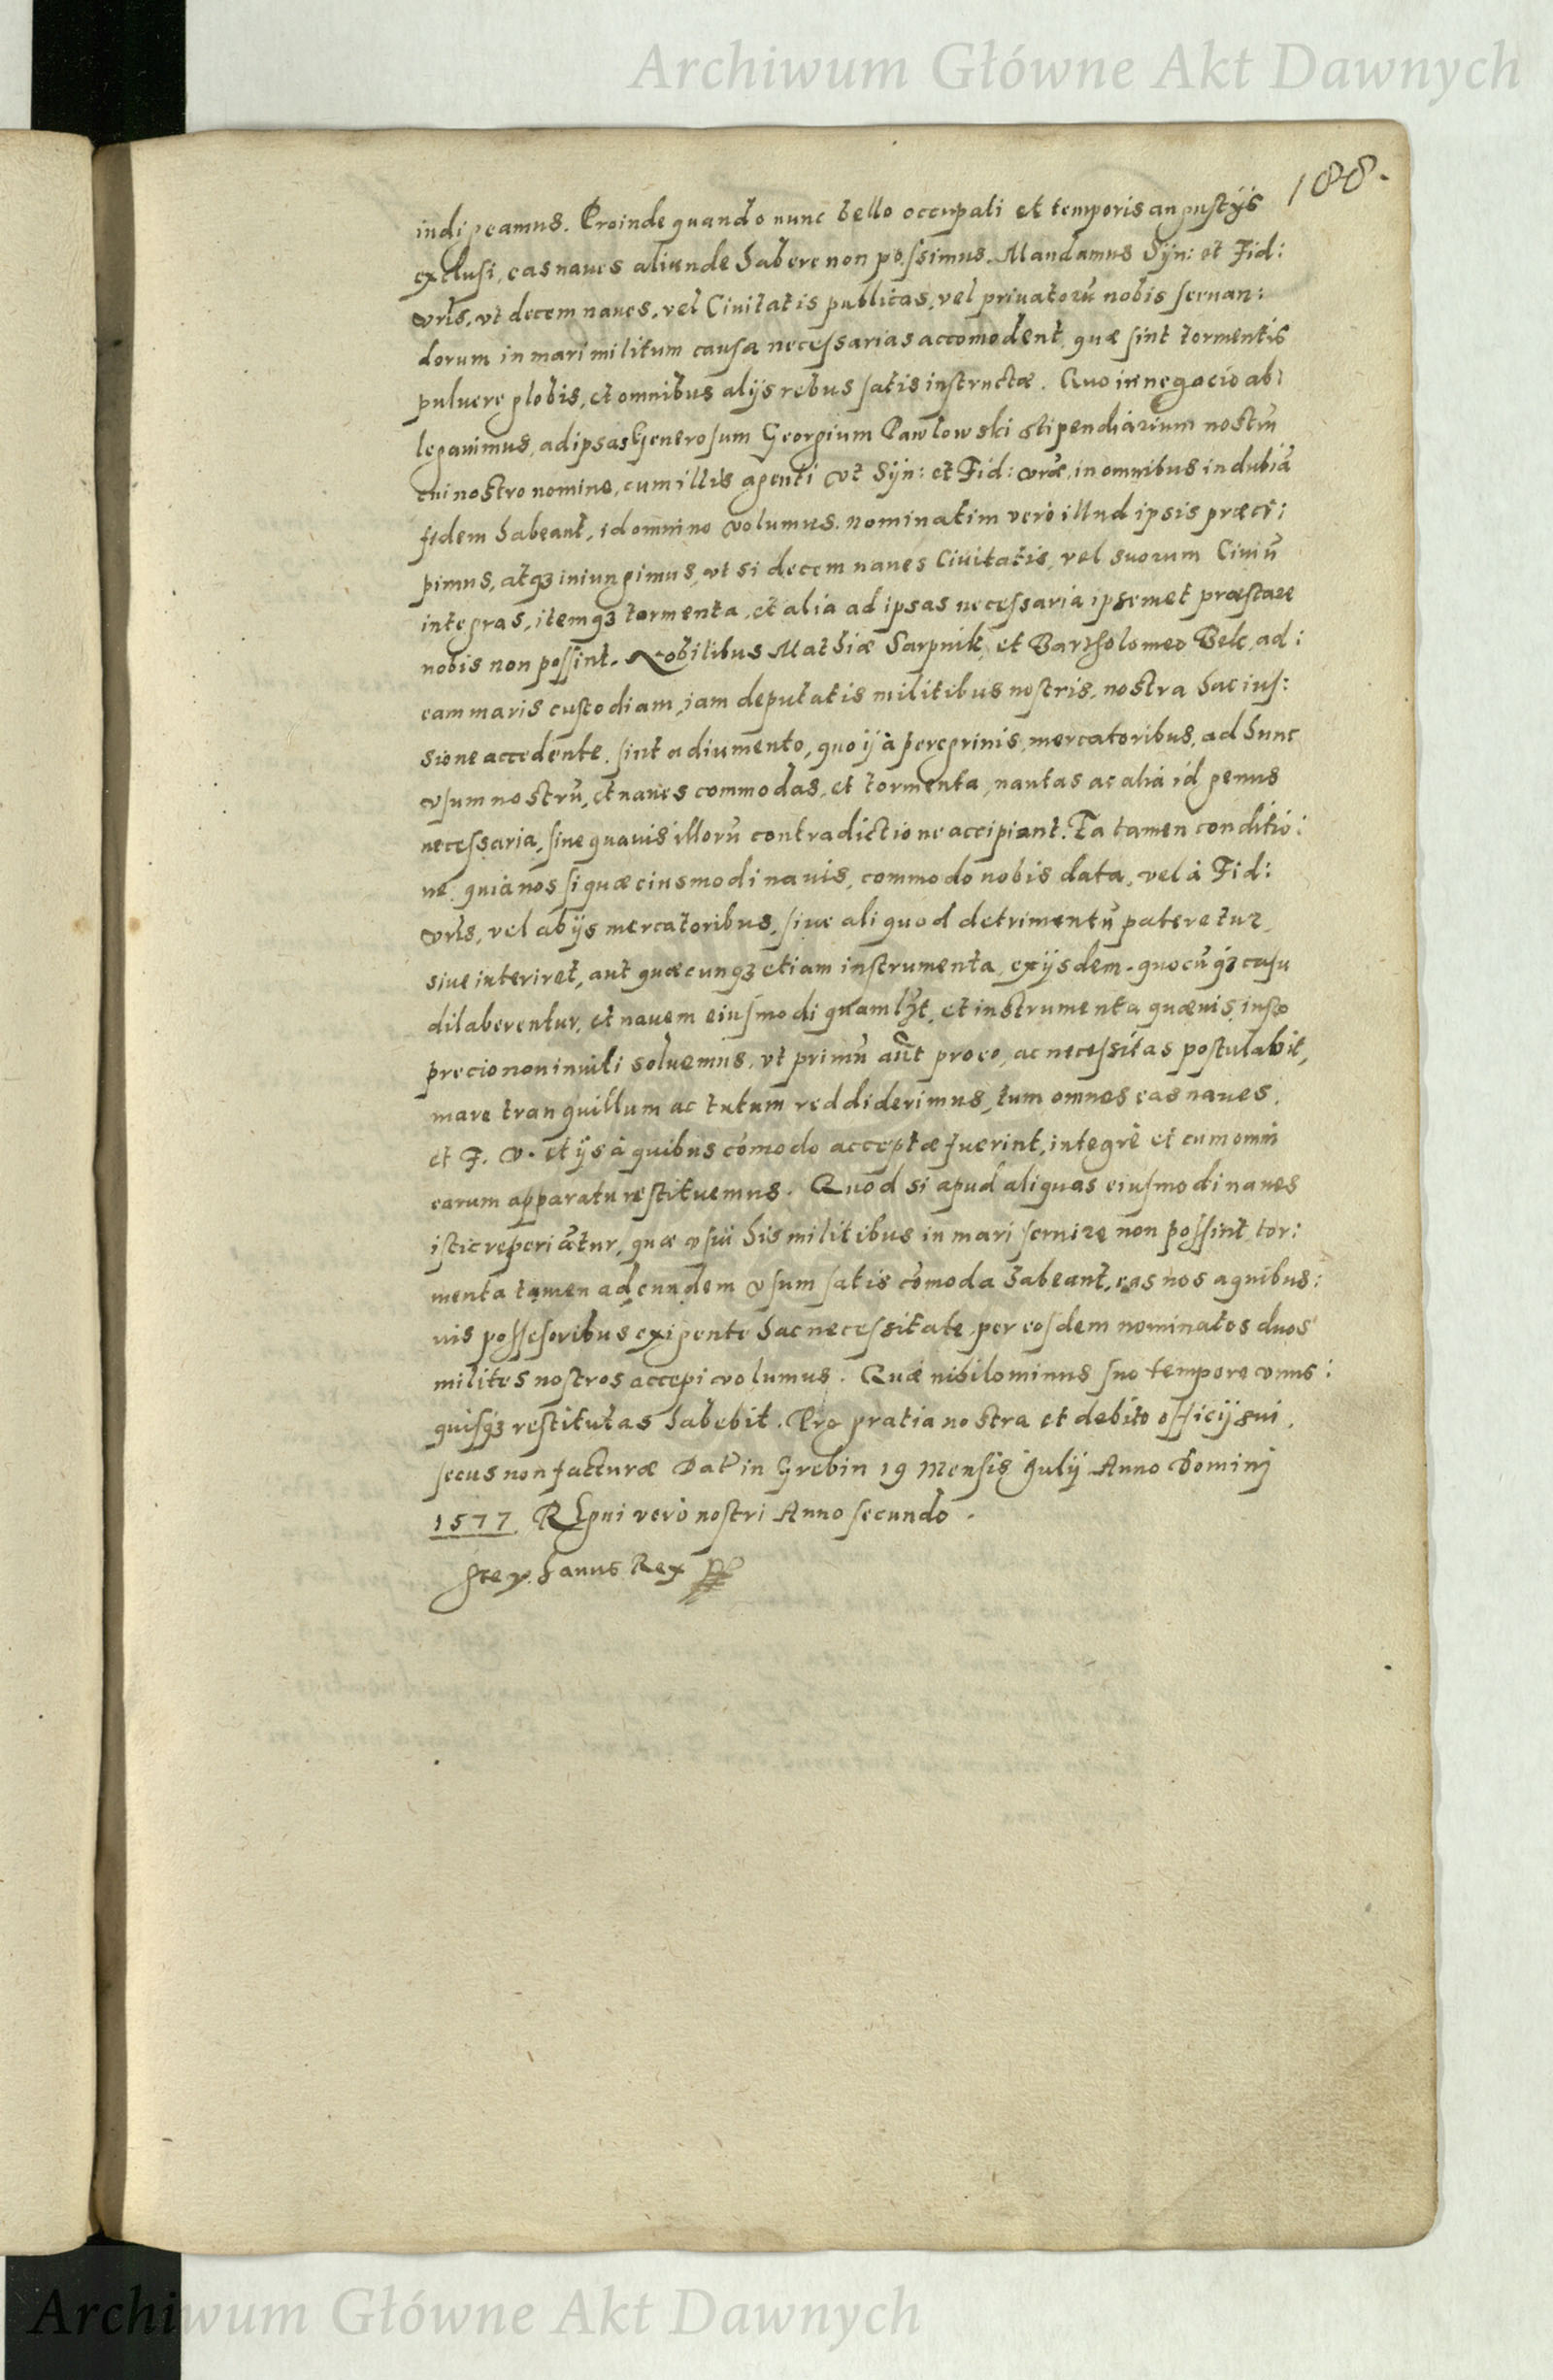 Archiwum Główne Akt Dawnych
188.
indigeamus. Proinde quando nunc bello occupati et temporis angustijs
exclusi, eas naues aliunde habere non possimus. Mandamus Syn: et Fid:
vrīs, vt decem naues, vel Ciuitatis publicas, vel priuatorū nobis seruan:
dorum in mari militum causa necessarias accomodent, quæ sint tormentis
puluere globis, et omnibus alijs rebus satis instructæ. Quo in negocio ab:
legauimus, ad ipsas Generosum Georgium Pawlowski stipendiarium nostrū
cui nostro nomine, cum illis agenti vt Syn: et Fid: vræ, in omnibus indubiā
fidem habeant, id omnino volumus. nominatim verò illud ipsis præci:
pimus, atq₃ iniungimus, vt si decem naues Ciuitatis, vel suorum Ciuiū
integras, itemq₃ tormenta, et alia ad ipsas necessaria ipsemet præstare
nobis non possint. Nobilibus Mathiæ Sarpnik, et Bartholomeo Bek, ad:
eam maris custodiam, iam deputatis militibus nostris, nostra hac ius:
sione accedente, sint adiumento, quo ij à peregrinis, mercatoribus, ad hunc
vsum nostrū, et naues commodas, et tormenta, nautas ac alia id genus
necessaria, sine quauis illorū contradictione accipiant. Ea tamen conditio:
ne. quia nos si quæ eiusmodi nauis, commodo nobis data, vel à Fid:
vrīs, vel ab ijs mercatoribus, siue aliquod detrimentū pateretur,
siue interiret, aut quæcunq₃ etiam instrumenta, ex ijsdem. quocūq₃ casu
dilaberentur, et nauem eiusmodi quamlꝫt, et instrumenta quæuis, iusto
precio non inuiti soluemus, vt primū aūt pro eo, ac necessitas postulabit,
mare tranquillum ac tutum reddiderimus, tum omnes eas naues,
et F. V. et ijs à quibus cōmodo acceptæ fuerint, integrè et cum omni
earum apparatu restituemus. Quod si apud aliquas eiusmodi naues
istic reperiātur, quæ vsui his militibus in mari seruire non possint, tor:
menta tamen ad eundem vsum satis cōmoda habeant, eas nos a quibus:
uis possesoribus exigente hac necessitate, per eosdem nominatos duos
milites nostros accepi volumus. Quæ nihilominus suo tempore vnus:
quisq₃ restitutas habebit. Pro gratia nostra et debito officij sui,
secus non facturæ Dat̄ in Grebin 19 Mensis Julij Anno Domini
1577. Regni verò nostri Anno secundo.
Stephanus Rex
Archiwum Główne Akt Dawnych